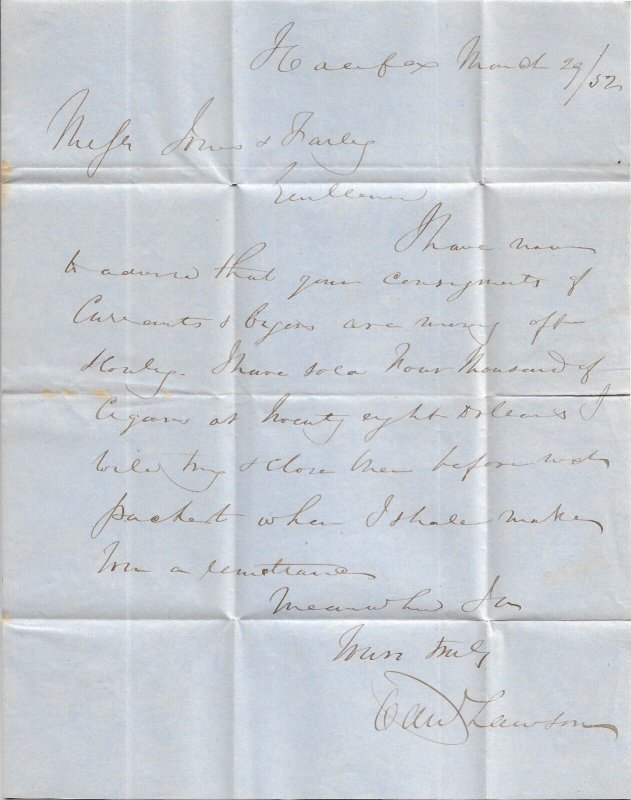 Halifax March 29/52
Messrs Jones & Farley
Gentlemen
I have now
to advise that your consignments of
Currants & Cigars are moving off
slowly. I have sold Four Thousand of
Cigars at Twenty eight Dollars I
will try & close them before next
packet when I shall make
You a remittance
Meanwhile I am
Yours truly
Lawson